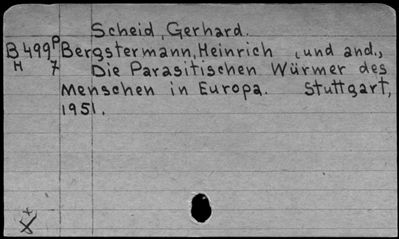 Scheid, Gerhard.
B499P Bergstermann, Heinrich, und and.,
H 7 Die Parasitischen Würmer des
Menschen in Europa. Stuttgart,
1951.